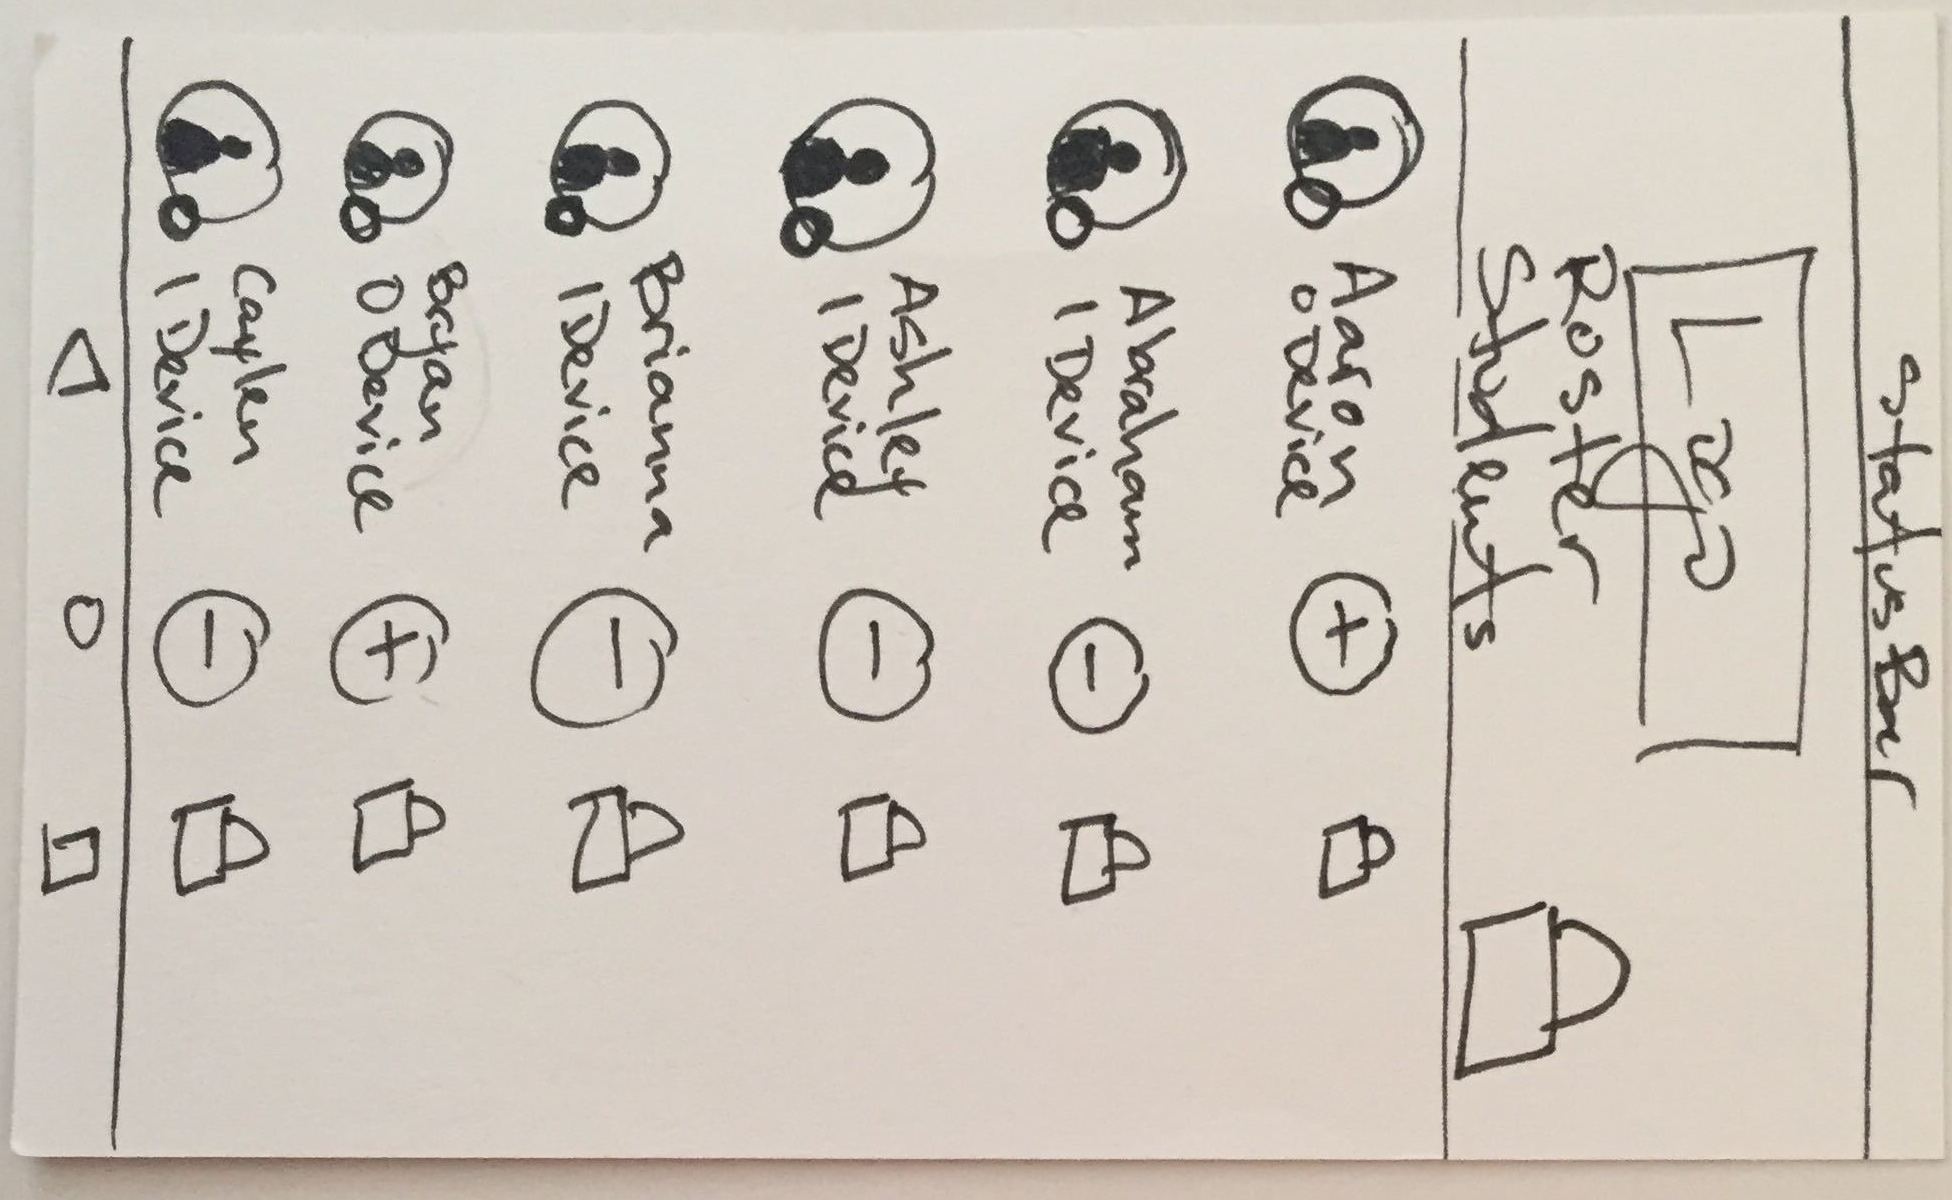 Status Bar
Logo
Roster
Students
Aaron
0 Device
Abraham
1 Device
Ashley
1 Device
Brianna
1 Device
Bryan
0 Device
Caylen
1 Device